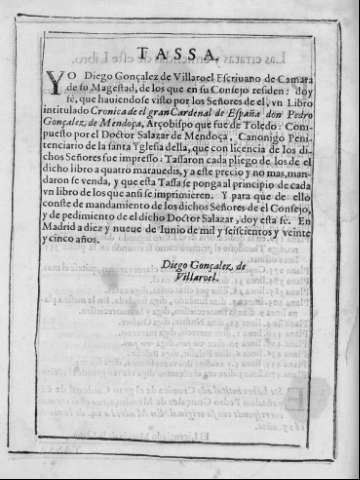 TASSA.
YO Diego Gonçalez de Villaroel Escriuano de Camara
de su Magestad, de los que en su Consejo residen: doy
fê, que hauiendose visto por los Señores de el, vn Libro
intitulado Cronica de el gran Cardenal de España don Pedro
Gonçalez de Mendoça, Arçobispo que fue de Toledo: Com-
puesto por el Doctor Salazar de Mendoça, Canonigo Peni-
tenciario de la santa Yglesia della, que con licencia de los di-
chos Señores fue impresso: Tassaron cada pliego de los de el
dicho libro a quatro marauedis, y a este precio y no mas, man-
daron se venda, y que esta Tassa se ponga al principio de cada
vn libro de los que ansi se imprimieren. Y para que de ello
conste de mandamiento de los dichos Señores de el Consejo,
y de pedimiento de el dicho Doctor Salazar, doy esta fê. En
Madrid a diez y nueue de Iunio de mil y seiscientos y veinte
y cinco años.
Diego Gonçalez, de
Villaroel.